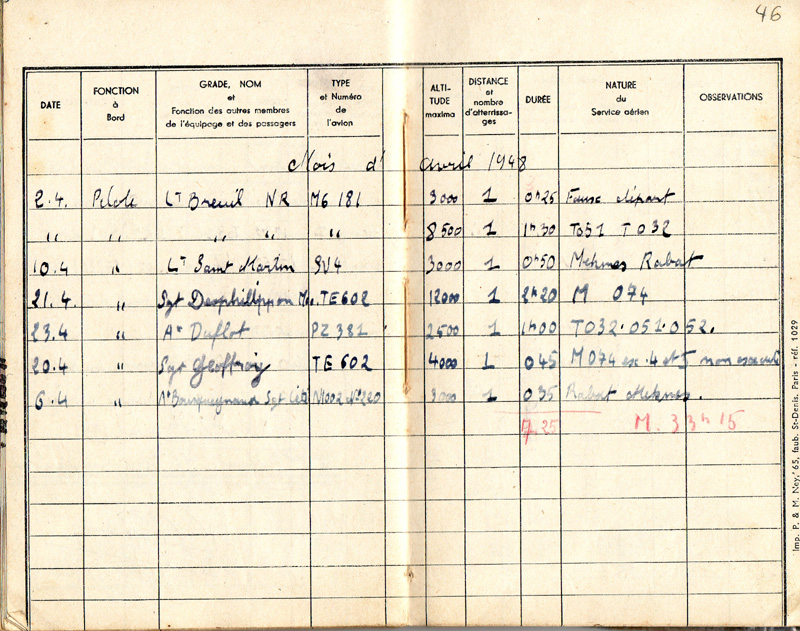 46
DATE FONCTION à Bord GRADE, NOM et Fonction des autres membres de l'équipage et des passagers TYPE et Numéro de l'avion ALTI-TUDE maxima DISTANCE et nombre d'atterrissa-ges DURÉE NATURE du Service aérien OBSERVATIONS
Mois d' avril 1948
2.4. Pilote Lt Breuil NR M6 181 3000 1 0h25 Faux départ
" " " " " 8500 1 1h30 T051 T032
10.4 " Lt Saint Martin SV4 3000 1 0h50 Meknes Rabat
21.4. " Sgt TE602 12000 1 2h20 M 074
23.4 " Duflot PZ 381 2500 1 1h00 T032.051.052.
20.4 " Sgt Geoffroy TE 602 4000 1 045 M074 ex. 4 et 5 non
6.4 " Sgt N1002 N°220 3000 1 035 Rabat Meknes.
25 M. 33h15
Imp. P. & M. Ney, 65, faub. St-Denis, Paris - réf. 1029